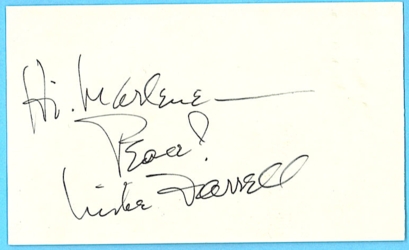 Hi. Marlene
Peace!
Mike Farrell